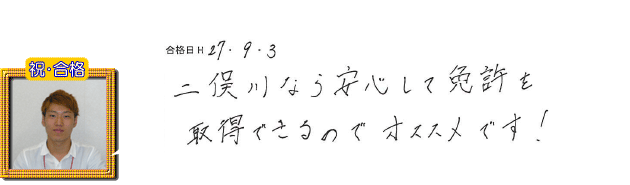 祝・合格
合格日 H 27. 9. 3
二俣川なら安心して免許を
取得できるのでオススメです!